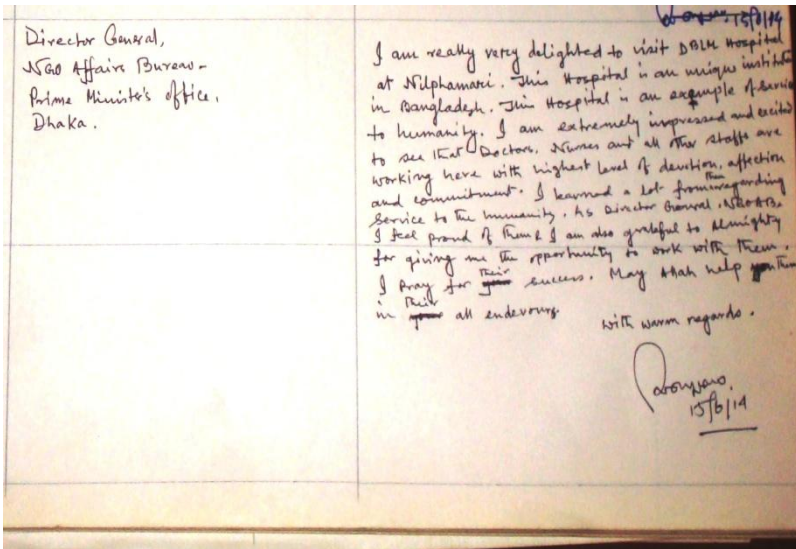 Director General,
NGO Affairs Bureau-
Prime Minister's office,
Dhaka.
13/6/14
I am really very delighted to visit DBLM Hospital
at Nilphamari. This Hospital is an unique institute
in Bangladesh. This Hospital is an example of service
to humanity. I am extremely impressed and excited
to see that Doctors, Nurses and all other staffs are
working here with highest level of devotion, affection
and commitment. I learned a lot from them regarding
service to the humanity. As Director General, NGOAB,
I feel proud of them & I am also grateful to Almighty
for giving me the opportunity to work with them.
I Pray for their success. May Allah help them
in their all endevours.
with warm regards.
15/6/14